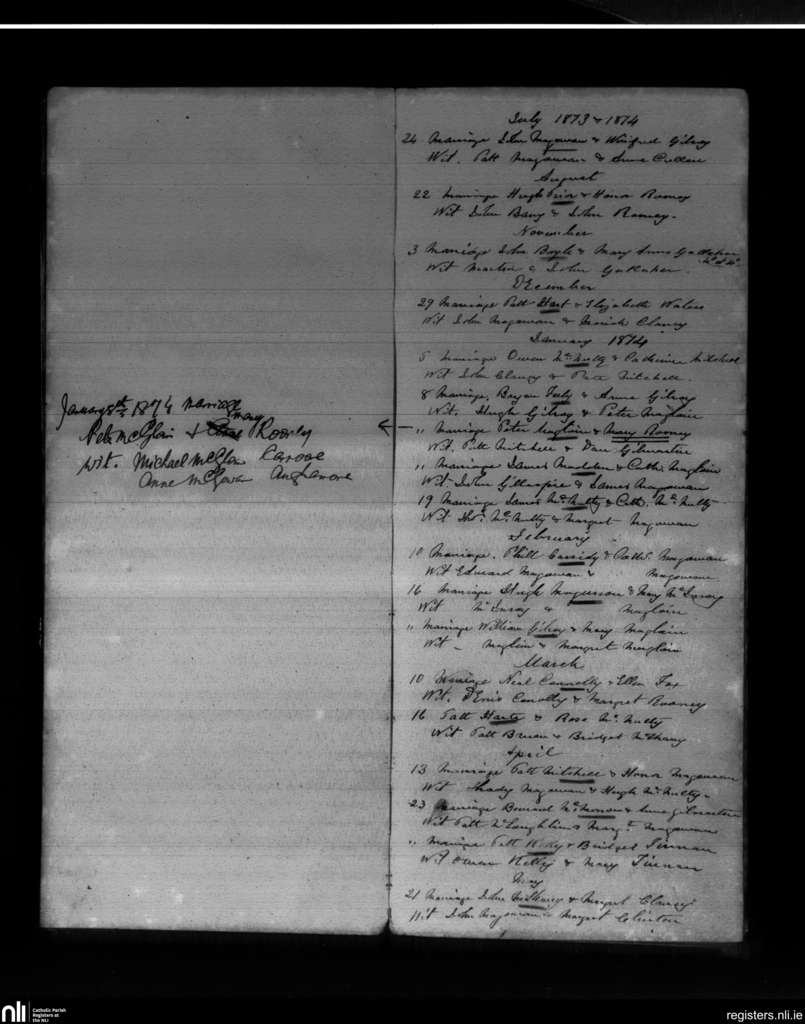 January 8th 1874 marriage
Peter McGloin & Mary Roonley
Wit. Michael McGloin
Anne McGowan
July 1873 & 1874
24 Marriage John Magowan & Winifred Gilroy
Wit. Patt Magowan & Anne Cullen
August
22 Marriage Hugh Prior & Honor Rooney
Wit John Barry & John Rooney.
November
3 Marriage John Boyle & Mary Anne Gallagher
Wit Martin & John Gallagher.
December
29 Marriage Patt Hart & Elizabeth Waters
Wit John Magowan & Clancy
January 1874
Marriage Owen McNulty & Catherine Mitchell
Wit John Clancy & Mitchell.
8 Marriage, Bryan Feely & Anne Gilroy
Wit. Hugh Gilroy & Peter Magloin
" Marriage Peter Magloin & Mary Rooney
Wit. Patt Mitchell & Gilmartin
" Marriage James Madden & Cath. Magloin
Wit John Gillespie & James Magowan
19 Marriage James McNulty & Cath. McNulty
Wit Thos. McNulty & Margret Magowan
February
10 Marriage. Phill Cassidy & Cath. Magowan
Wit Edward Magowan & Magowan
16 Marriage Hugh & Mary
Wit & Magloin
" Marriage William Gilroy & Mary Magloin
Wit - Magloin & Margret Magloin
March
10 Marriage Neal Connolly & Ellen Fox
Wit. Denis Conolly & Margret Rooney
16 Patt Harte & Rose McNulty
Wit Patt & Bridget
April
13 Marriage Patt Mitchell & Honor Magowan
Wit Thady Magowan & Hugh McNulty.
23 Marriage & Anne Gilmartin
Wit Patt McLaughlin & Margt. Magowan
" Marriage Patt Kelly & Bridget Tiernan
Wit Owen Kelly & Mary Tiernan
May
21 Marriage John & Margret Clancy
Wit John Magowan & Margret Clinton
nli
Catholic Parish
Registers at
the NLI
registers.nli.ie